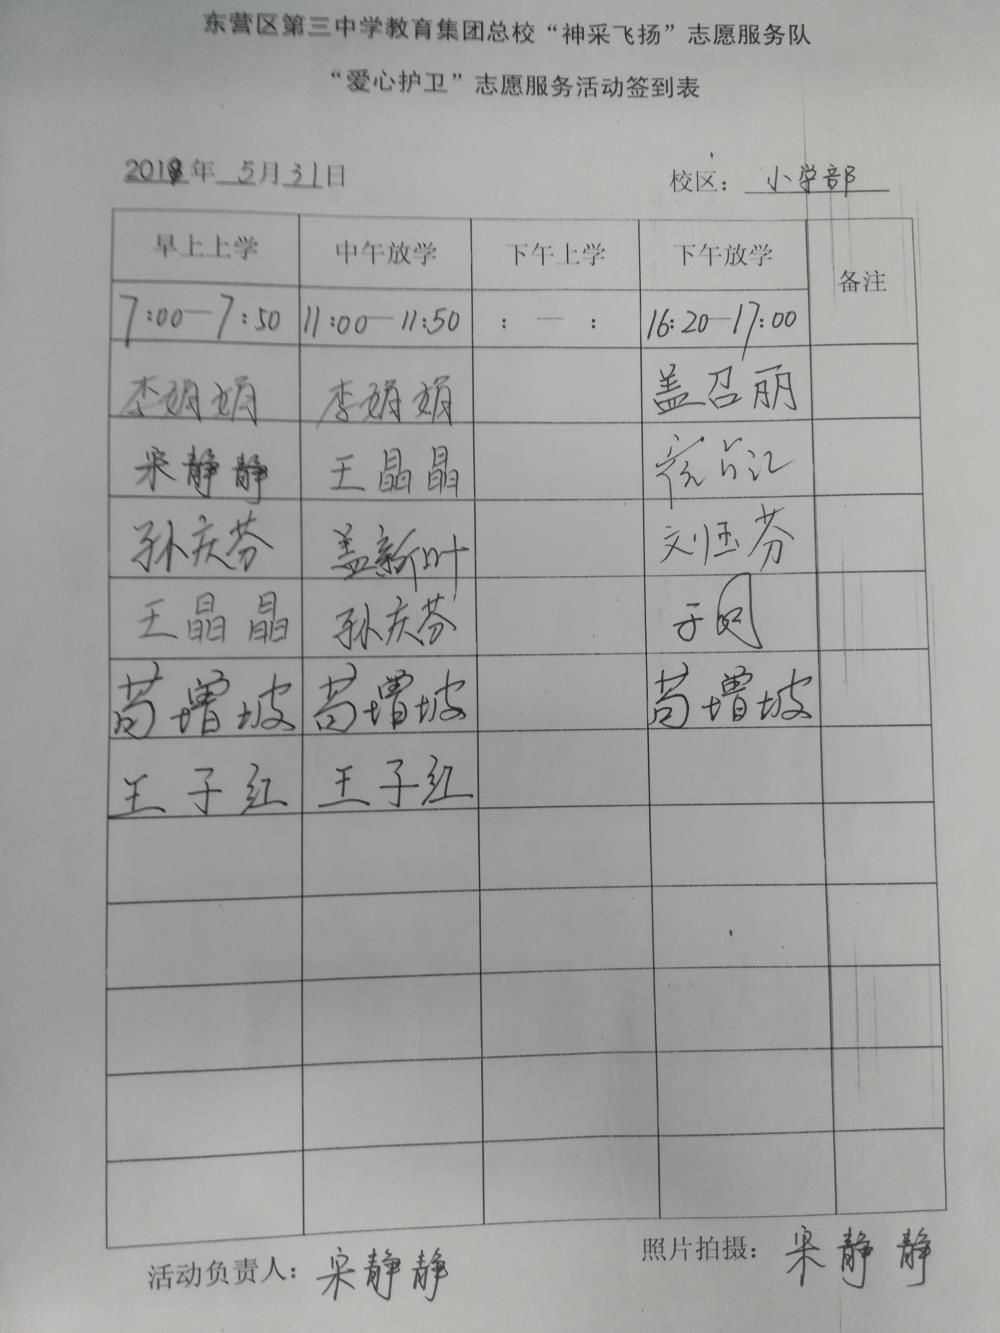 东营区第三中学教育集团总校“神采飞扬”志愿服务队
“爱心护卫”志愿服务活动签到表
2019年 5月31日 校区：小学部
早上上学 中午放学 下午上学 下午放学 备注
7:00—7:50 11:00—11:50 : — : 16:20—17:00
李娟娟 李娟娟 盖召丽
宋静静 王晶晶
孙庆芬 盖新叶 刘玉芬
王晶晶 孙庆芬 于
苟增坡 苟增坡 苟增坡
王子红 王子红
活动负责人：宋静静 照片拍摄：宋静静